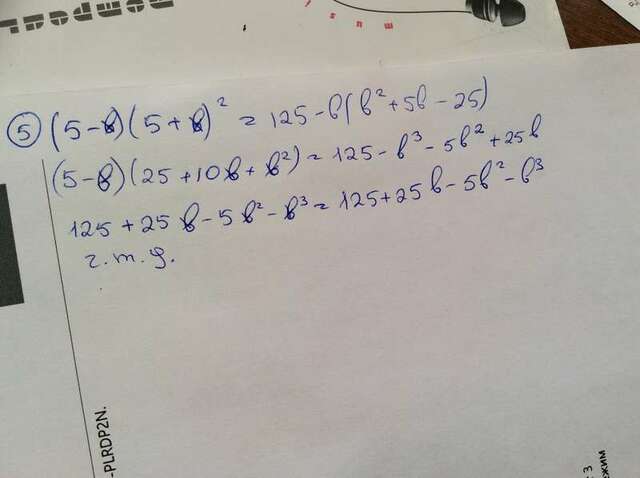 5 (5-b)(5+b)² = 125-b(b²+5b-25)
(5-b)(25+10b+b²) = 125-b³-5b²+25b
125+25b-5b²-b³ = 125+25b-5b²-b³
г.т.д.
-PLRDP2N.